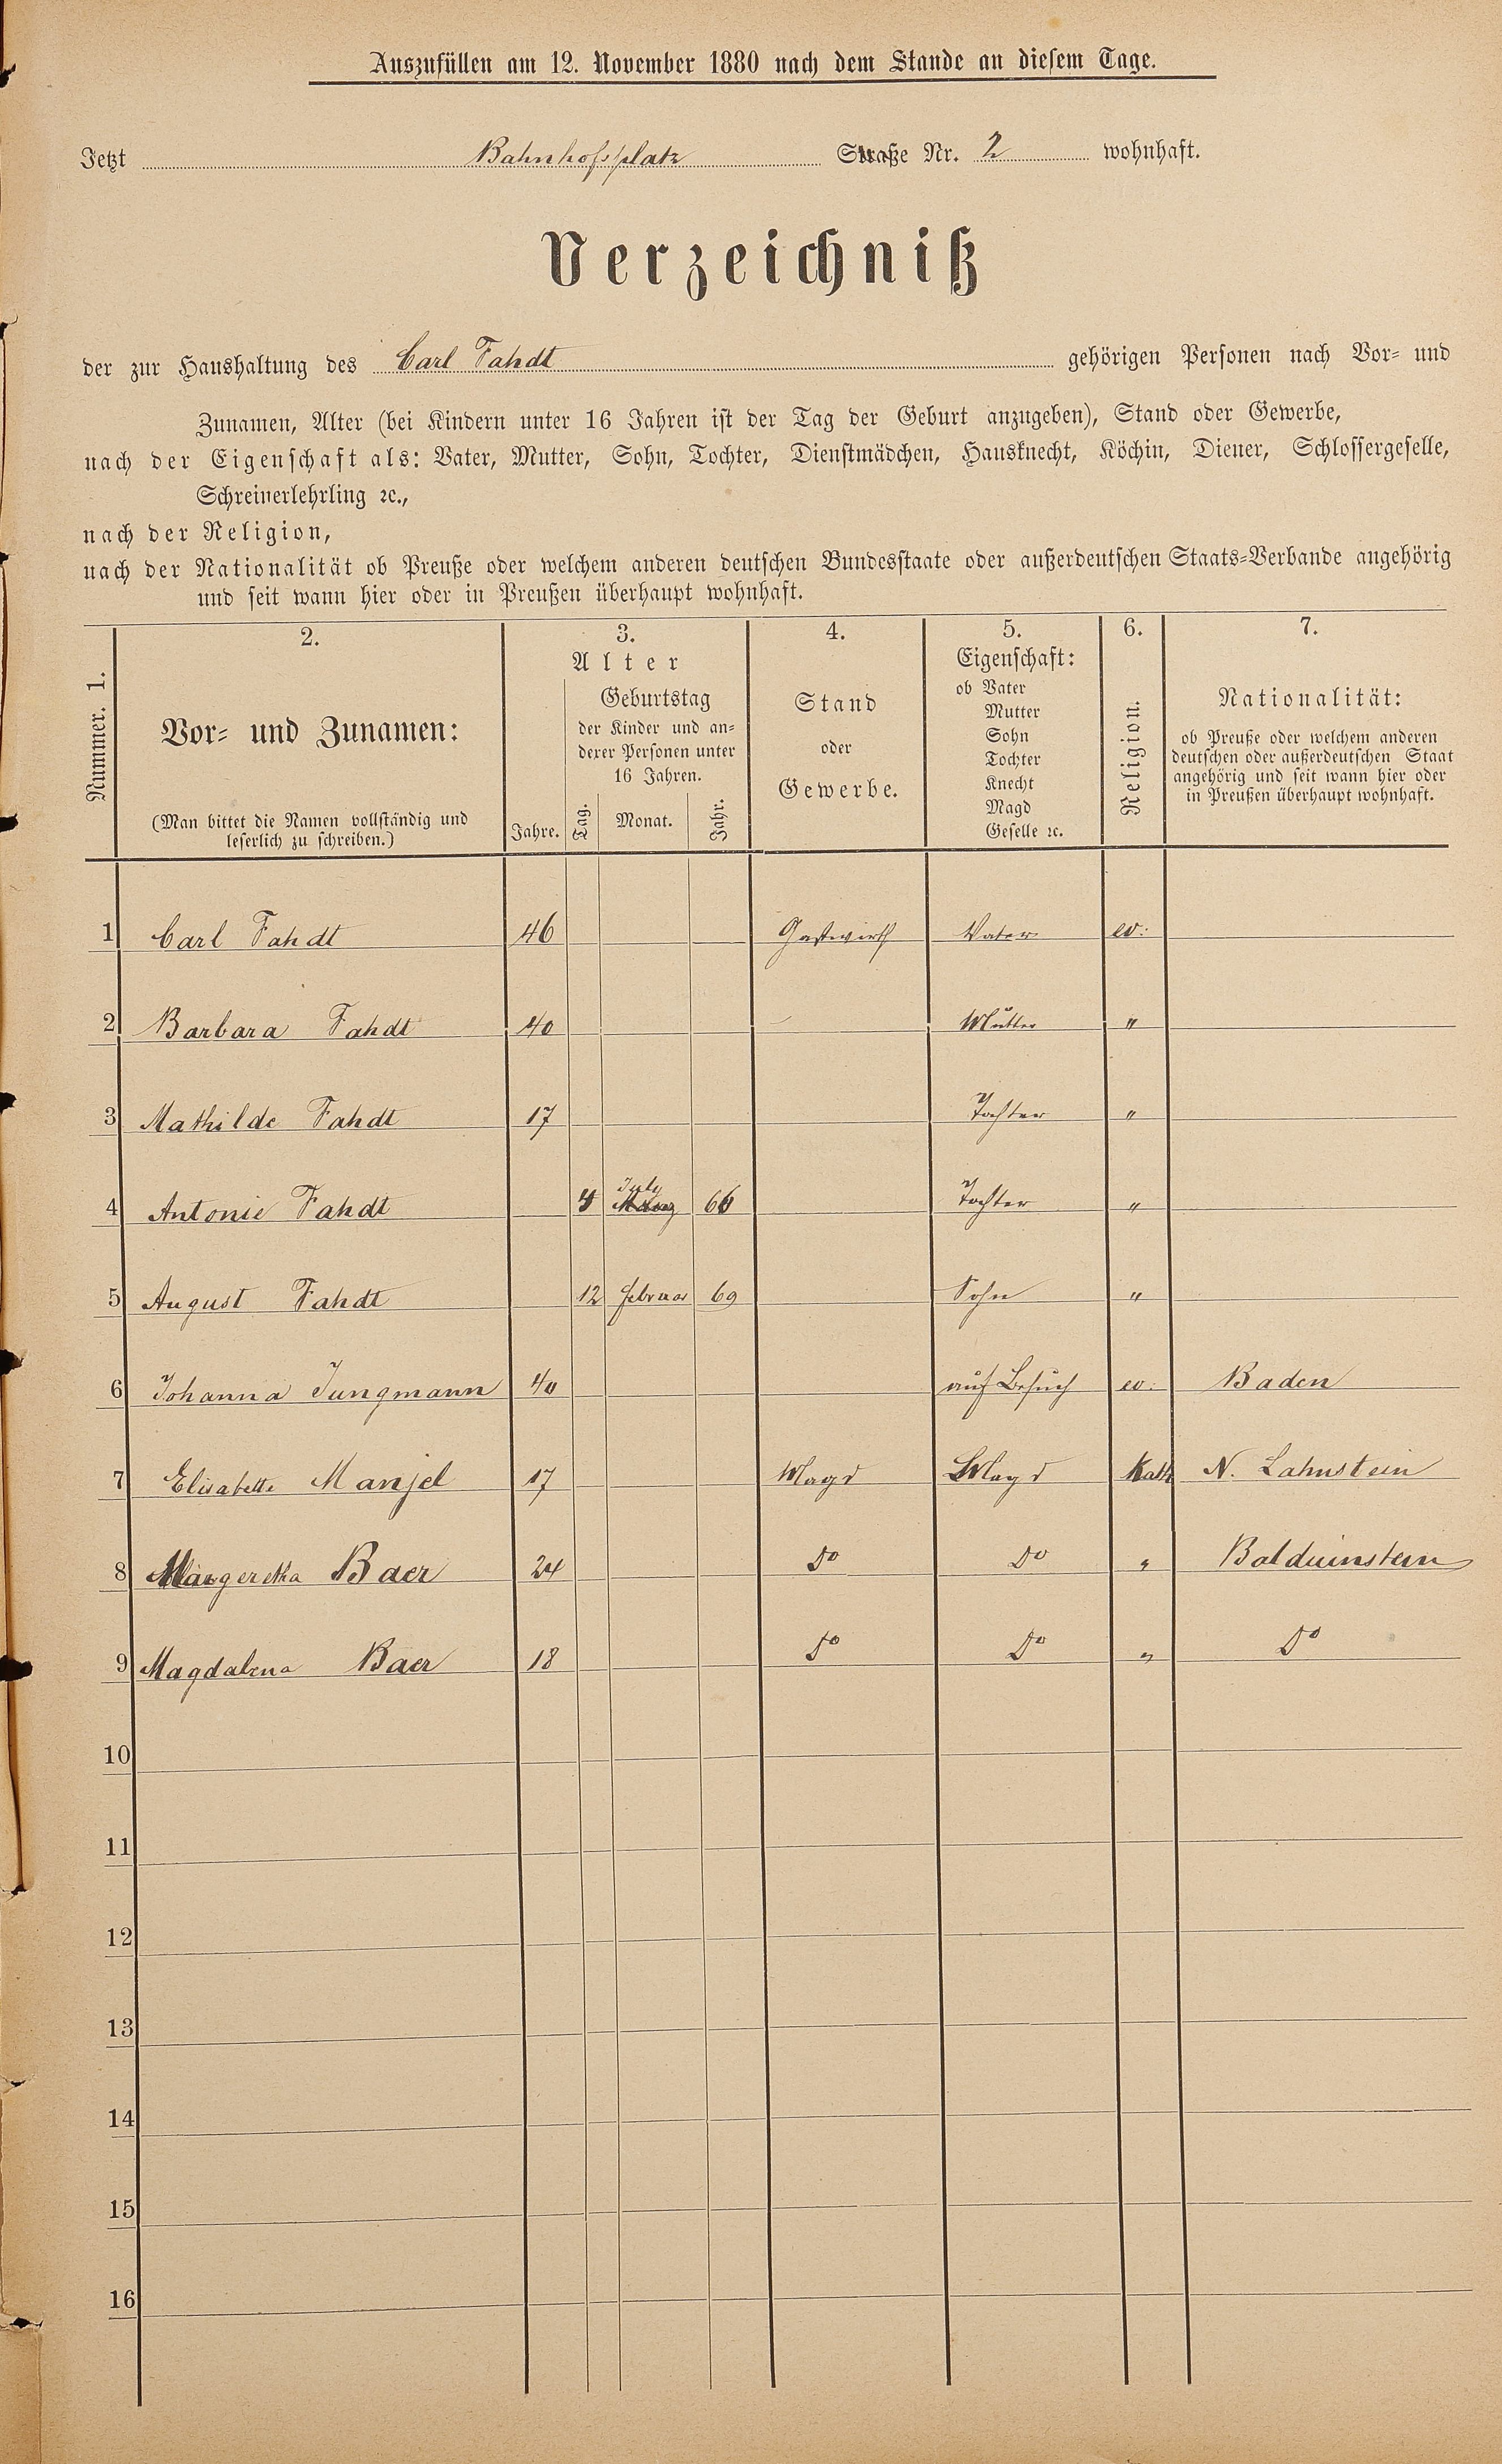 Auszufüllen am 12. November 1880 nach dem Stande an diesem Tage.
Jetzt Bahnhofsplatz Straße Nr. 2 wohnhaft.
Verzeichniß
der zur Haushaltung des Carl Fahdt gehörigen Personen nach Vor- und
Zunamen, Alter (bei Kindern unter 16 Jahren ist der Tag der Geburt anzugeben), Stand oder Gewerbe,
nach der Eigenschaft als: Vater, Mutter, Sohn, Tochter, Dienstmädchen, Hausknecht, Köchin, Diener, Schlossergeselle,
Schreinerlehrling ꝛc.,
nach der Religion,
nach der Nationalität ob Preuße oder welchem anderen deutschen Bundesstaate oder außerdeutschen Staats-Verbande angehörig
und seit wann hier oder in Preußen überhaupt wohnhaft.
Nummer. 1.
2.
Vor- und Zunamen:
(Man bittet die Namen vollständig und
leserlich zu schreiben.)
3.
Alter
Jahre.
Geburtstag
der Kinder und an-
derer Personen unter
16 Jahren.
Tag. Monat. Jahr.
4.
Stand
oder
Gewerbe.
5.
Eigenschaft:
ob Vater
Mutter
Sohn
Tochter
Knecht
Magd
Geselle ꝛc.
6.
Religion.
7.
Nationalität:
ob Preuße oder welchem anderen
deutschen oder außerdeutschen Staat
angehörig und seit wann hier oder
in Preußen überhaupt wohnhaft.
1 Carl Fahdt 46 Gastwirth Vater ev:
2 Barbara Fahdt 40 Mutter "
3 Mathilde Fahdt 17 Tochter "
4 Antonie Fahdt July 66 Tochter "
5 August Fahdt 12 Februar 69 Sohn "
6 Johanna Jungmann 40 auf Besuch ev: Baden
7 Elisabetha Manjel 17 Magd Magd Kath N. Lahnstein
8 Margeretha Baer 24 Do Do " Balduinstein
9 Magdalena Baer 18 Do Do " Do
10
11
12
13
14
15
16